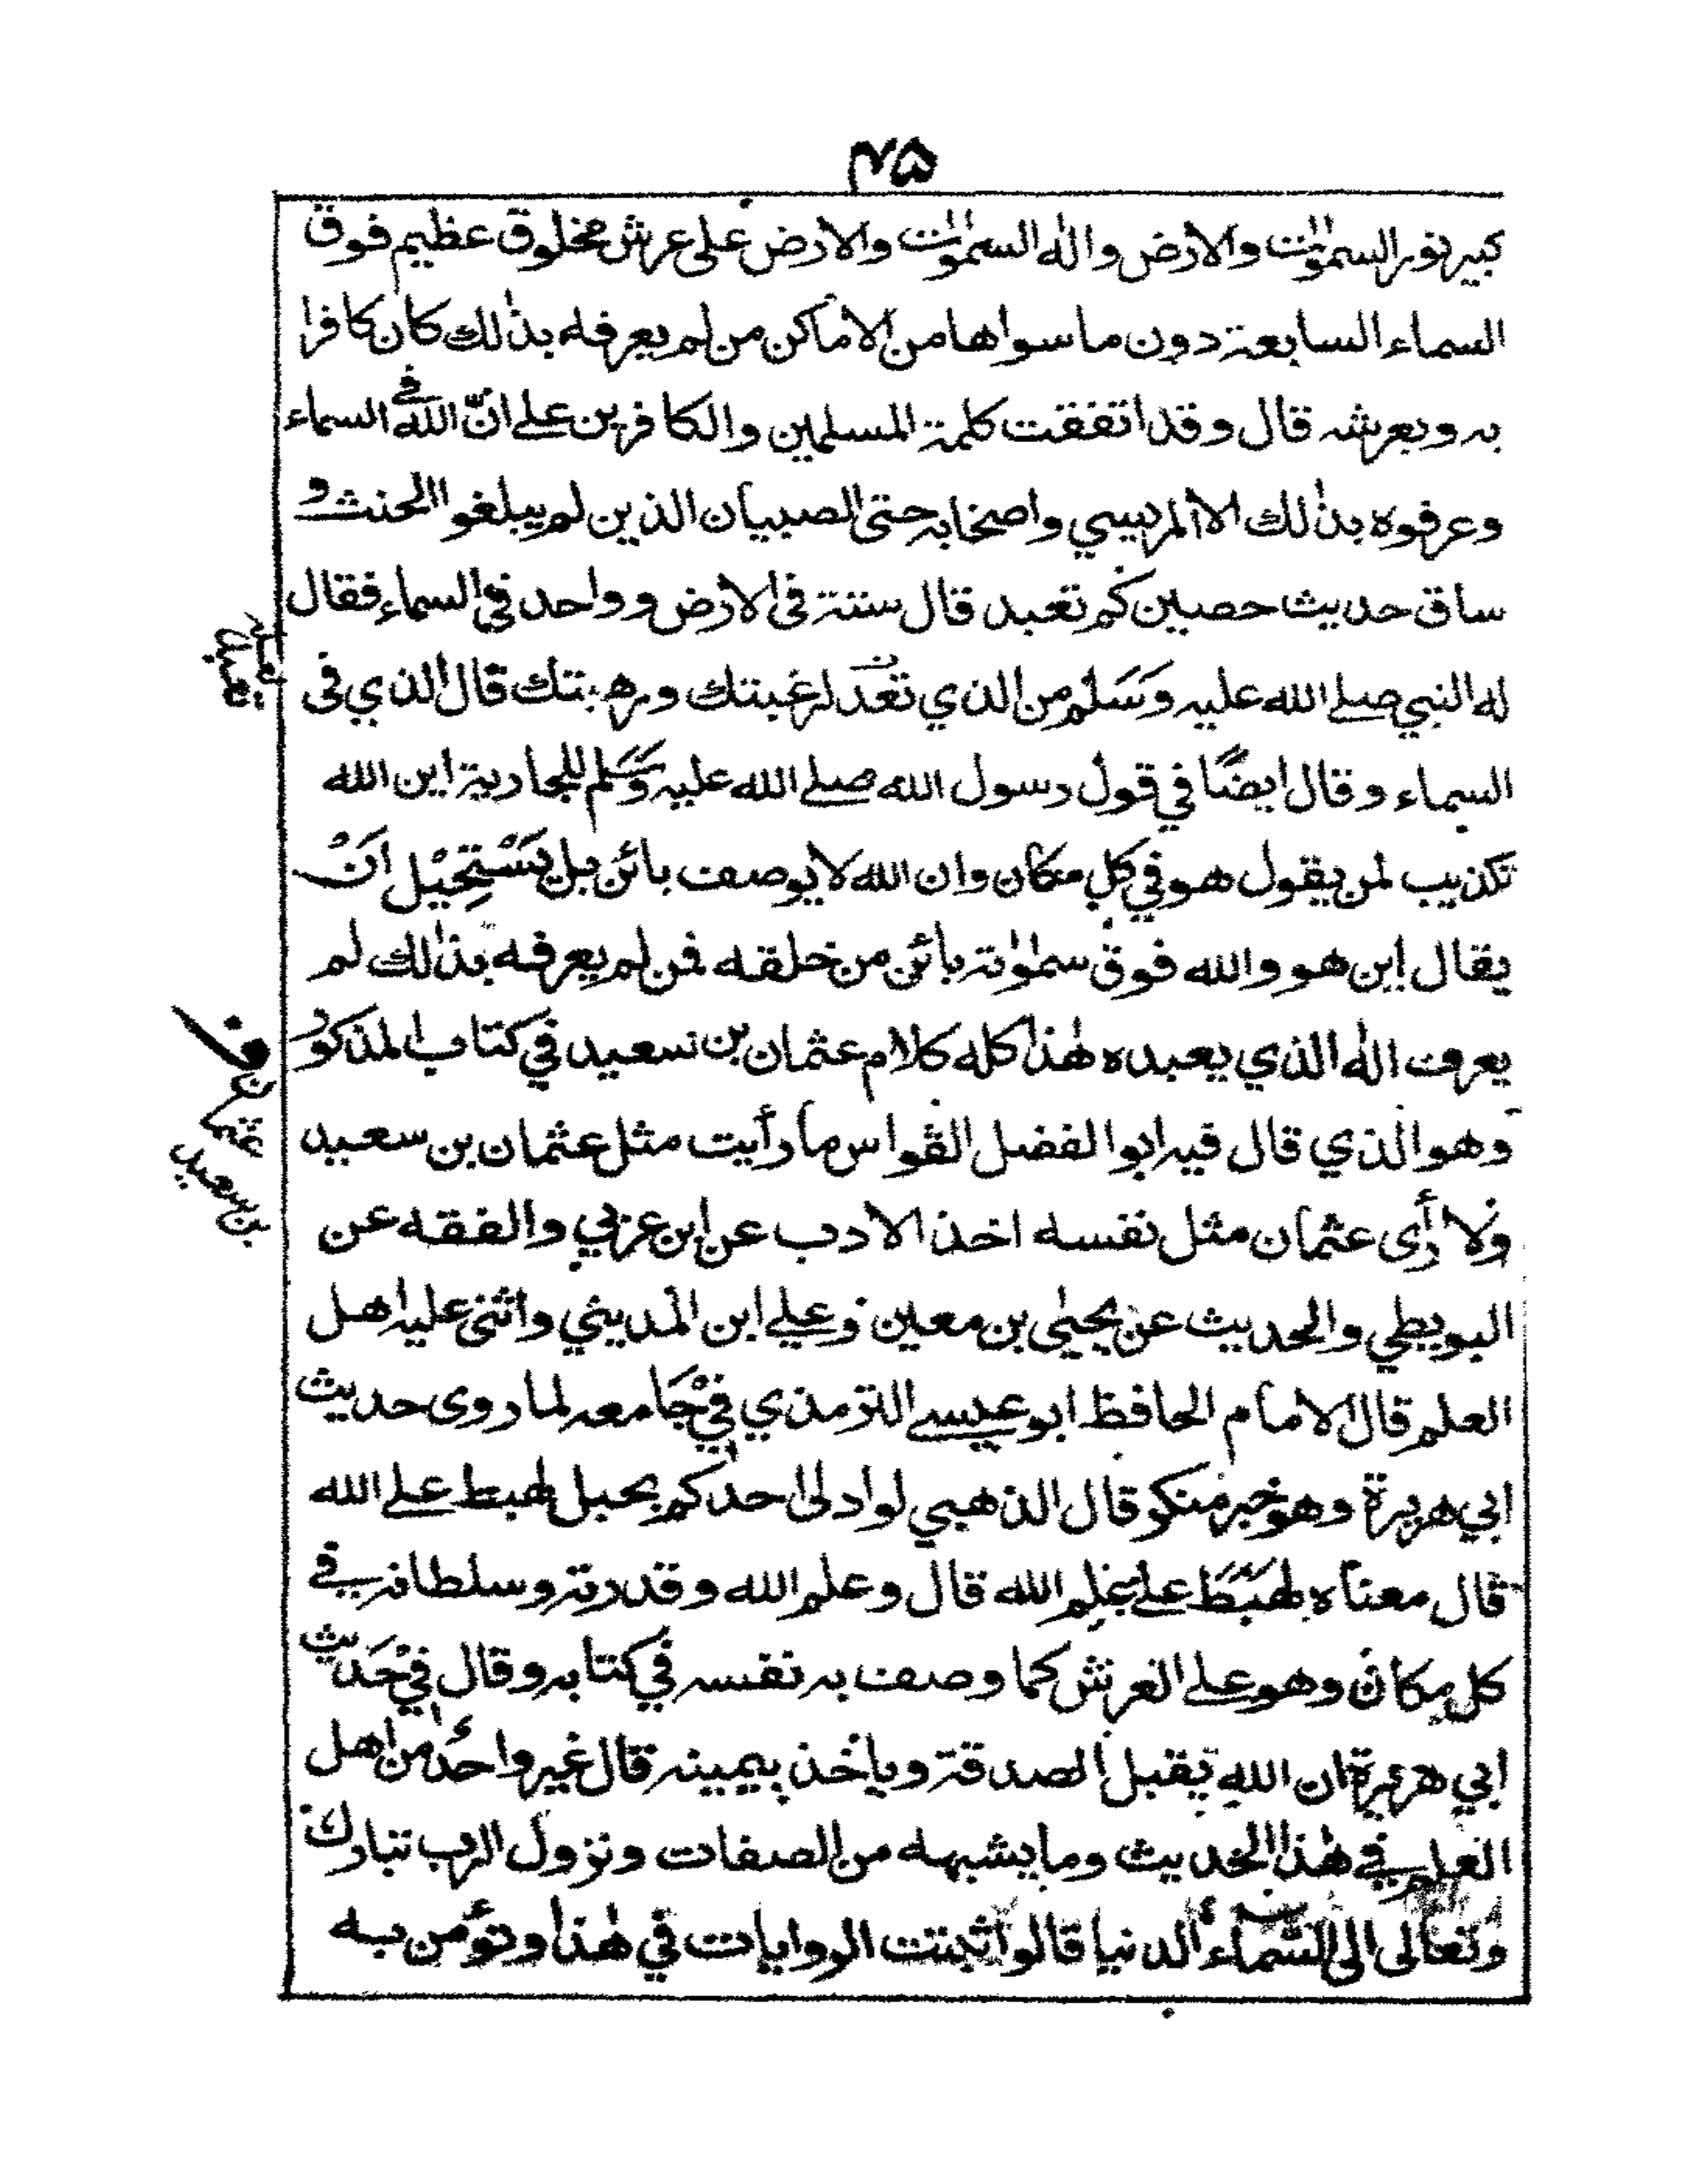 ٢٥
كبير نور السمٰوٰت والارض واله السمٰوٰت والارض على عرش مخلوق عظيم فوق
السماء السابعة دون ما سواها من الاماكن من لم يعرفه بذٰلك كان كافرا
به وبعرشه قال وقد اتفقت كلمة المسلمين والكافرين على انّ الله في السماء
وعرفوه بذٰلك الا المريسي واصحابه حتى الصبيان الذين لم يبلغوا الحنث و
ساق حديث حصين كم تعبد قال ستة في الارض وواحد في السماء فقال
له النبي صلى الله عليه وَسَلم من الذي تعد لرغبتك ورهبتك قال الذي في
السماء وقال ايضًا في قول رسول الله صلى الله عليه وَسَلم للجارية اين الله
تكذيب لمن يقول هو في كل مكان وان الله لا يوصف بائن بل يَسْتحِيْل اَنْ
يقال اين هو والله فوق سمٰوٰته بائن من خلقه فمن لم يعرفه بذٰلك لم
يعرف الٰه الذي يعبده هٰذا كله كلام عثمان بن سعيد في كتاب المذكور
وهو الذي قال فيه ابو الفضل القواس ما رأيت مثل عثمان بن سعيد
ولا رأى عثمان مثل نفسه اخذ الادب عن ابن عربي والفقه عن
البويطي والحديث عن يحيٰى بن معين وعلى ابن المديني واثنى عليه اهل
العلم قال الامام الحافظ ابو عيسى الترمذي في جَامعه لما روى حديث
ابي هريرة وهو خبر منكر قال الذهبي لو ادلى احدكم بحبل لهبط على الله
قال معناه لهَبَطَ على علم الله قال وعلم الله وقدرته وسلطانه في
كل مكان وهو على العرش كما وصف به نفسه في كتابه وقال في حَديث
ابي هريرة ان الله يقبل الصدقة وياخذ بيمينه قال غير واحد من اهل
العلم في هٰذا الحديث وما يشبهه من الصفات ونزول الرب تبارك
وتعالى الى السماء الدنيا قالوا ثبتت الروايات في هٰذا ونؤمن به
ف
عثمان
بن سعيد